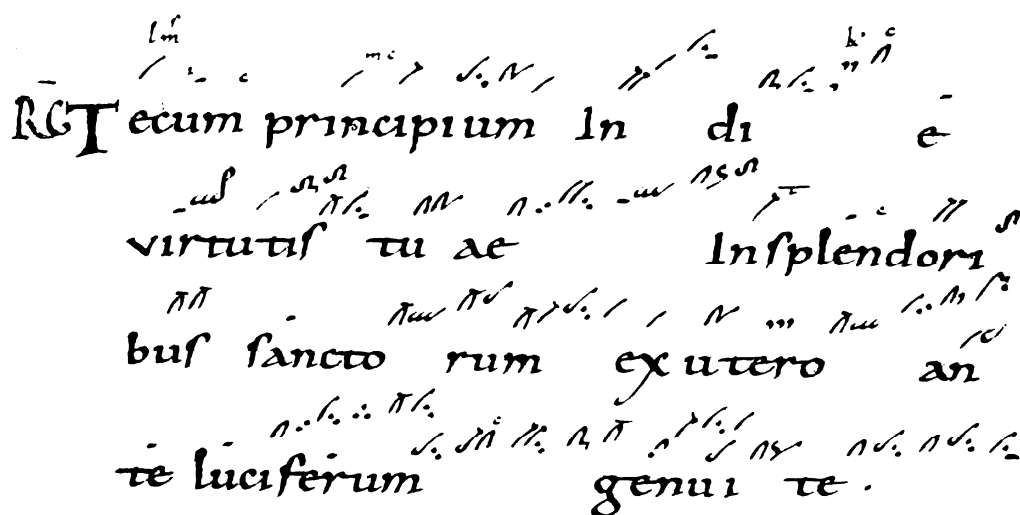 RG Tecum principium In di e
virtutis tu ae Insplendori
bus sancto rum exutero an
te luciferum genui te .